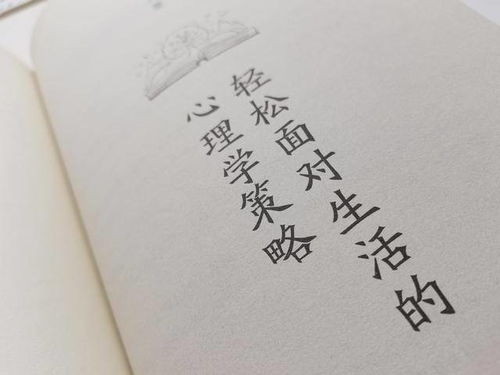 轻松面对生活的
心理学策略